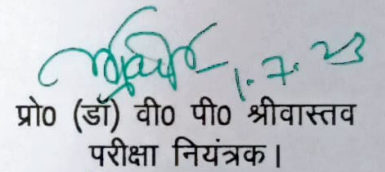 1.7.23
प्रो0 (डॉ) वी0 पी0 श्रीवास्तव
परीक्षा नियंत्रक।